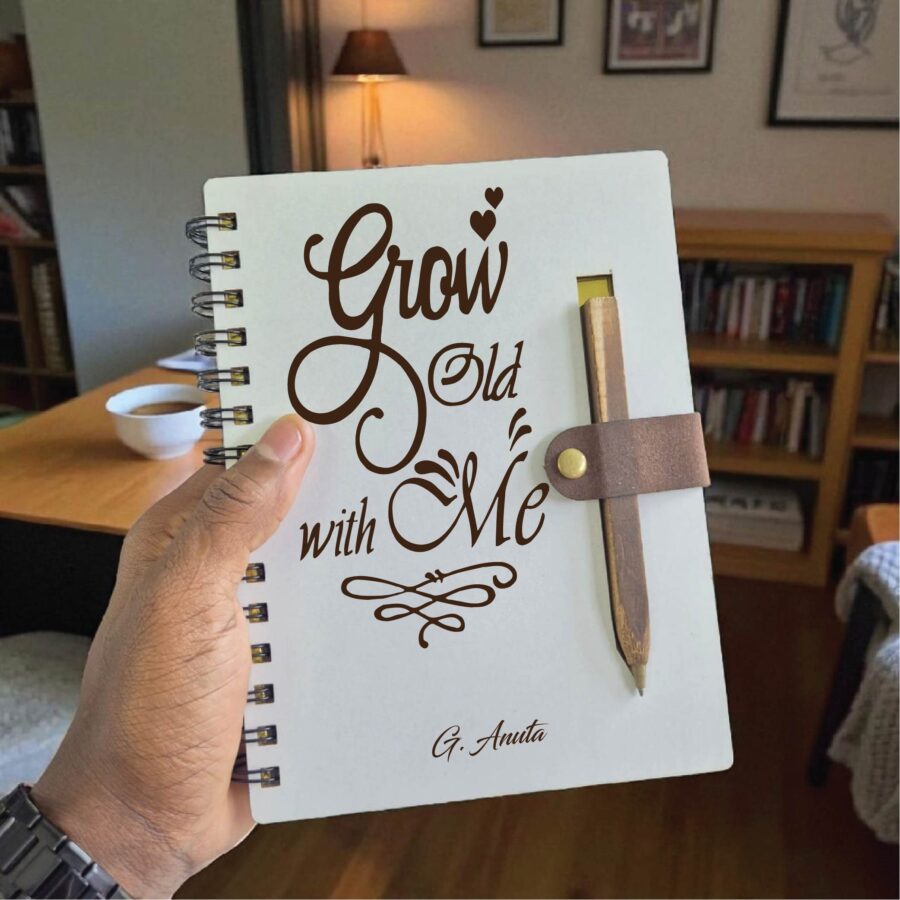 Grow
Old
with Me
G. Anuta